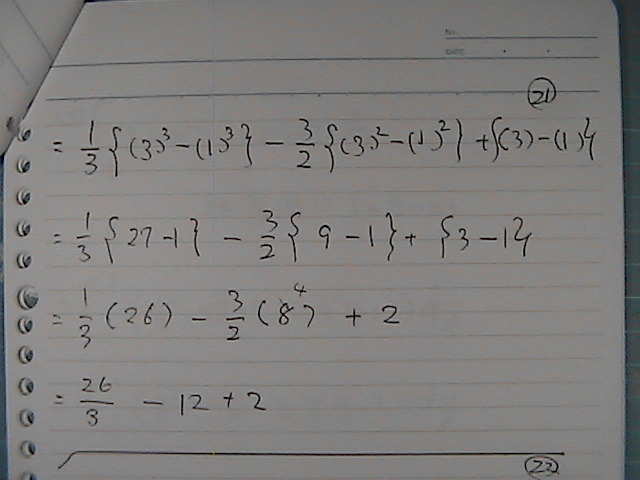 NO.
DATE
21
= 1/3 {(3)³ - (1)³} - 3/2 {(3)² - (1)²} + {(3) - (1)}
= 1/3 {27 - 1} - 3/2 {9 - 1} + {3 - 1}
= 1/3 (26) - 3/2 (8⁴) + 2
= 26/3 - 12 + 2
22